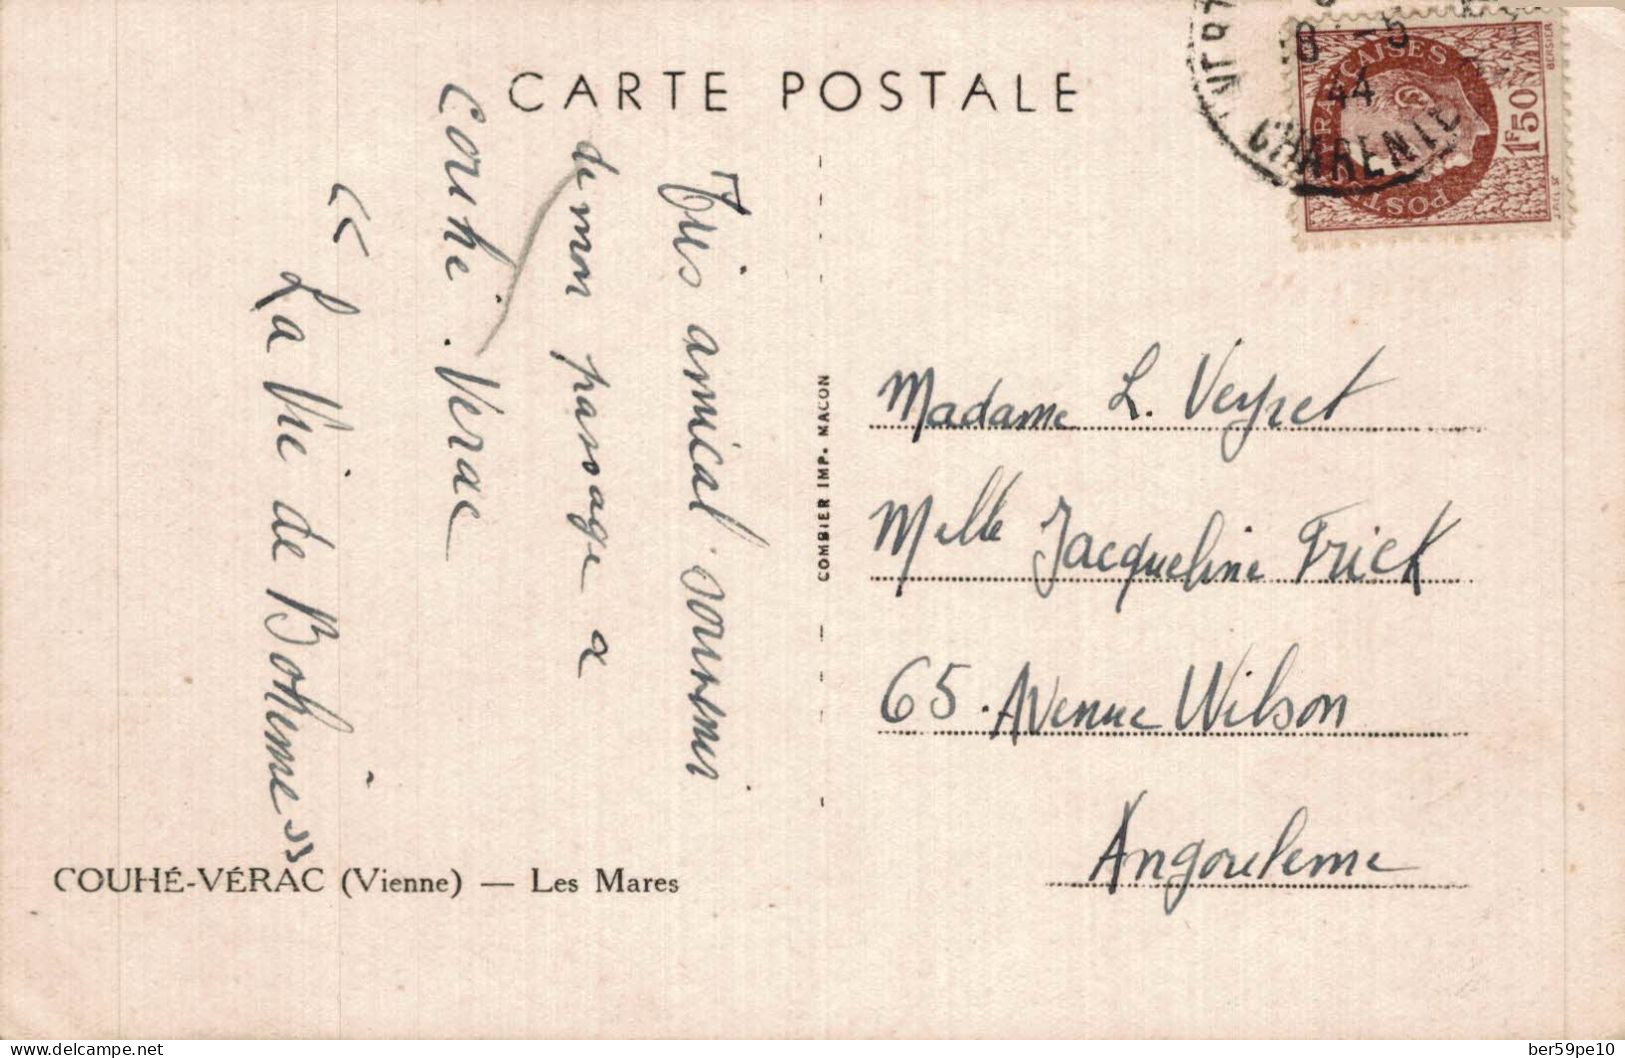 CARTE POSTALE
Très amical souvenir
de mon passage a
Couhé. Verac
« La Vie de Boheme »
COMBIER IMP. MACON
8 -5
44
CHARENTE
POSTES FRANÇAISES
1F50
BERSIER
Madame L. Veyret
Melle Jacqueline Frick
65. Avenue Wilson
Angouleme
COUHÉ-VÉRAC (Vienne) — Les Mares
delcampe.net
ber59pe10